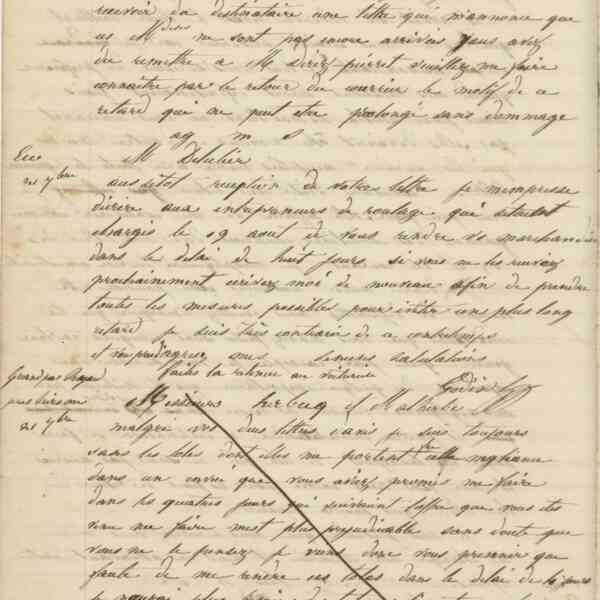 recevoir du destinataire une lettre qui m'annonce que
ces M dises ne sont pas encore arrivées vous avez
du remettre a M pierret veuillez me faire
connaître par le retour du courrier le motif de ce
retard qui ne peut etre prolongé sans dommage
ag m s
Eu
M Delulier
21 7bre
aussitot reception de votre lettre je m'empresse
d'écrire aux entrepreneurs de roulage qui setaient
chargés le 19 aout de vous rendre vos marchandises
dans le delai de huit jours si vous ne les receviez
prochainement ecrivez moi de nouveau afin de prendre
toutes les mesures possibles pour éviter un plus long
retard je suis très contrarié de ce contretemps
et vous prie d'agréer mes sinceres salutations
faites la retenue au voiturier
Godin
pres
21 7bre
Messieurs et Malherbe
malgré vos deux lettres d'avis je suis toujours
sans les toles dont elles me portent cette negligence
dans un envoi que vous aviez promis me faire
dans les quatre jours qui suivraient l'affre que vous etes
venu me faire m'est plus prejudiciable sans doute que
vous ne le pensez je viens donc vous prevenir que
faute de me rendre ces toles dans le delai de jours
je plus